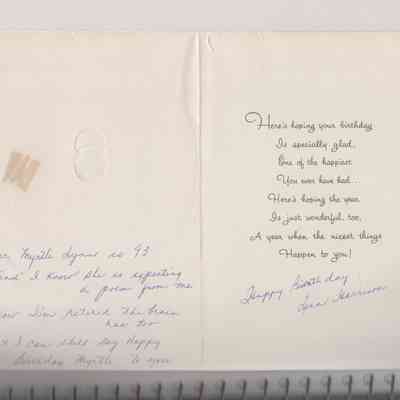 Myrtle Lynn is 93
And I know she is expecting
a poem from me
now I'm retired the brain
has too
I can still say Happy
Birthday Myrtle to you
Here's hoping your birthday
Is specially glad,
One of the happiest
You ever have had...
Here's hoping the year
Is just wonderful, too,
A year when the nicest things
Happen to you!
Happy Birthday
Harrison